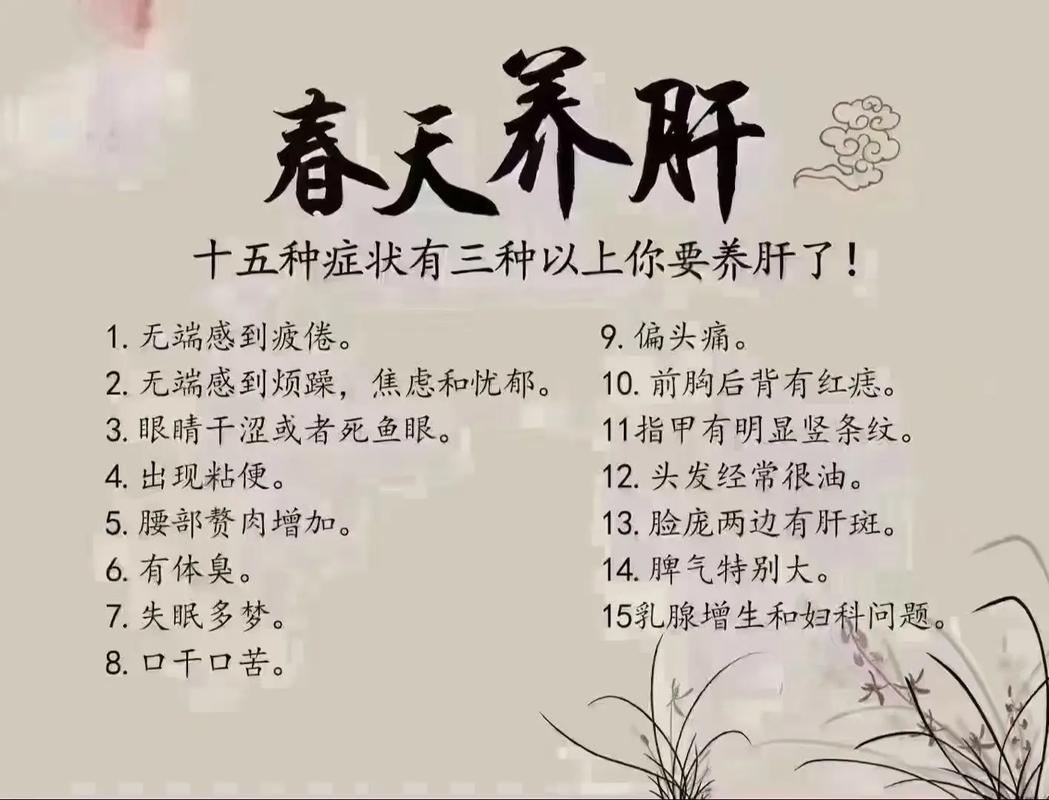 春天养肝
十五种症状有三种以上你要养肝了！
1. 无端感到疲倦。
2. 无端感到烦躁，焦虑和忧郁。
3. 眼睛干涩或者死鱼眼。
4. 出现粘便。
5. 腰部赘肉增加。
6. 有体臭。
7. 失眠多梦。
8. 口干口苦。
9. 偏头痛。
10. 前胸后背有红痣。
11指甲有明显竖条纹。
12. 头发经常很油。
13. 脸庞两边有肝斑。
14. 脾气特别大。
15乳腺增生和妇科问题。